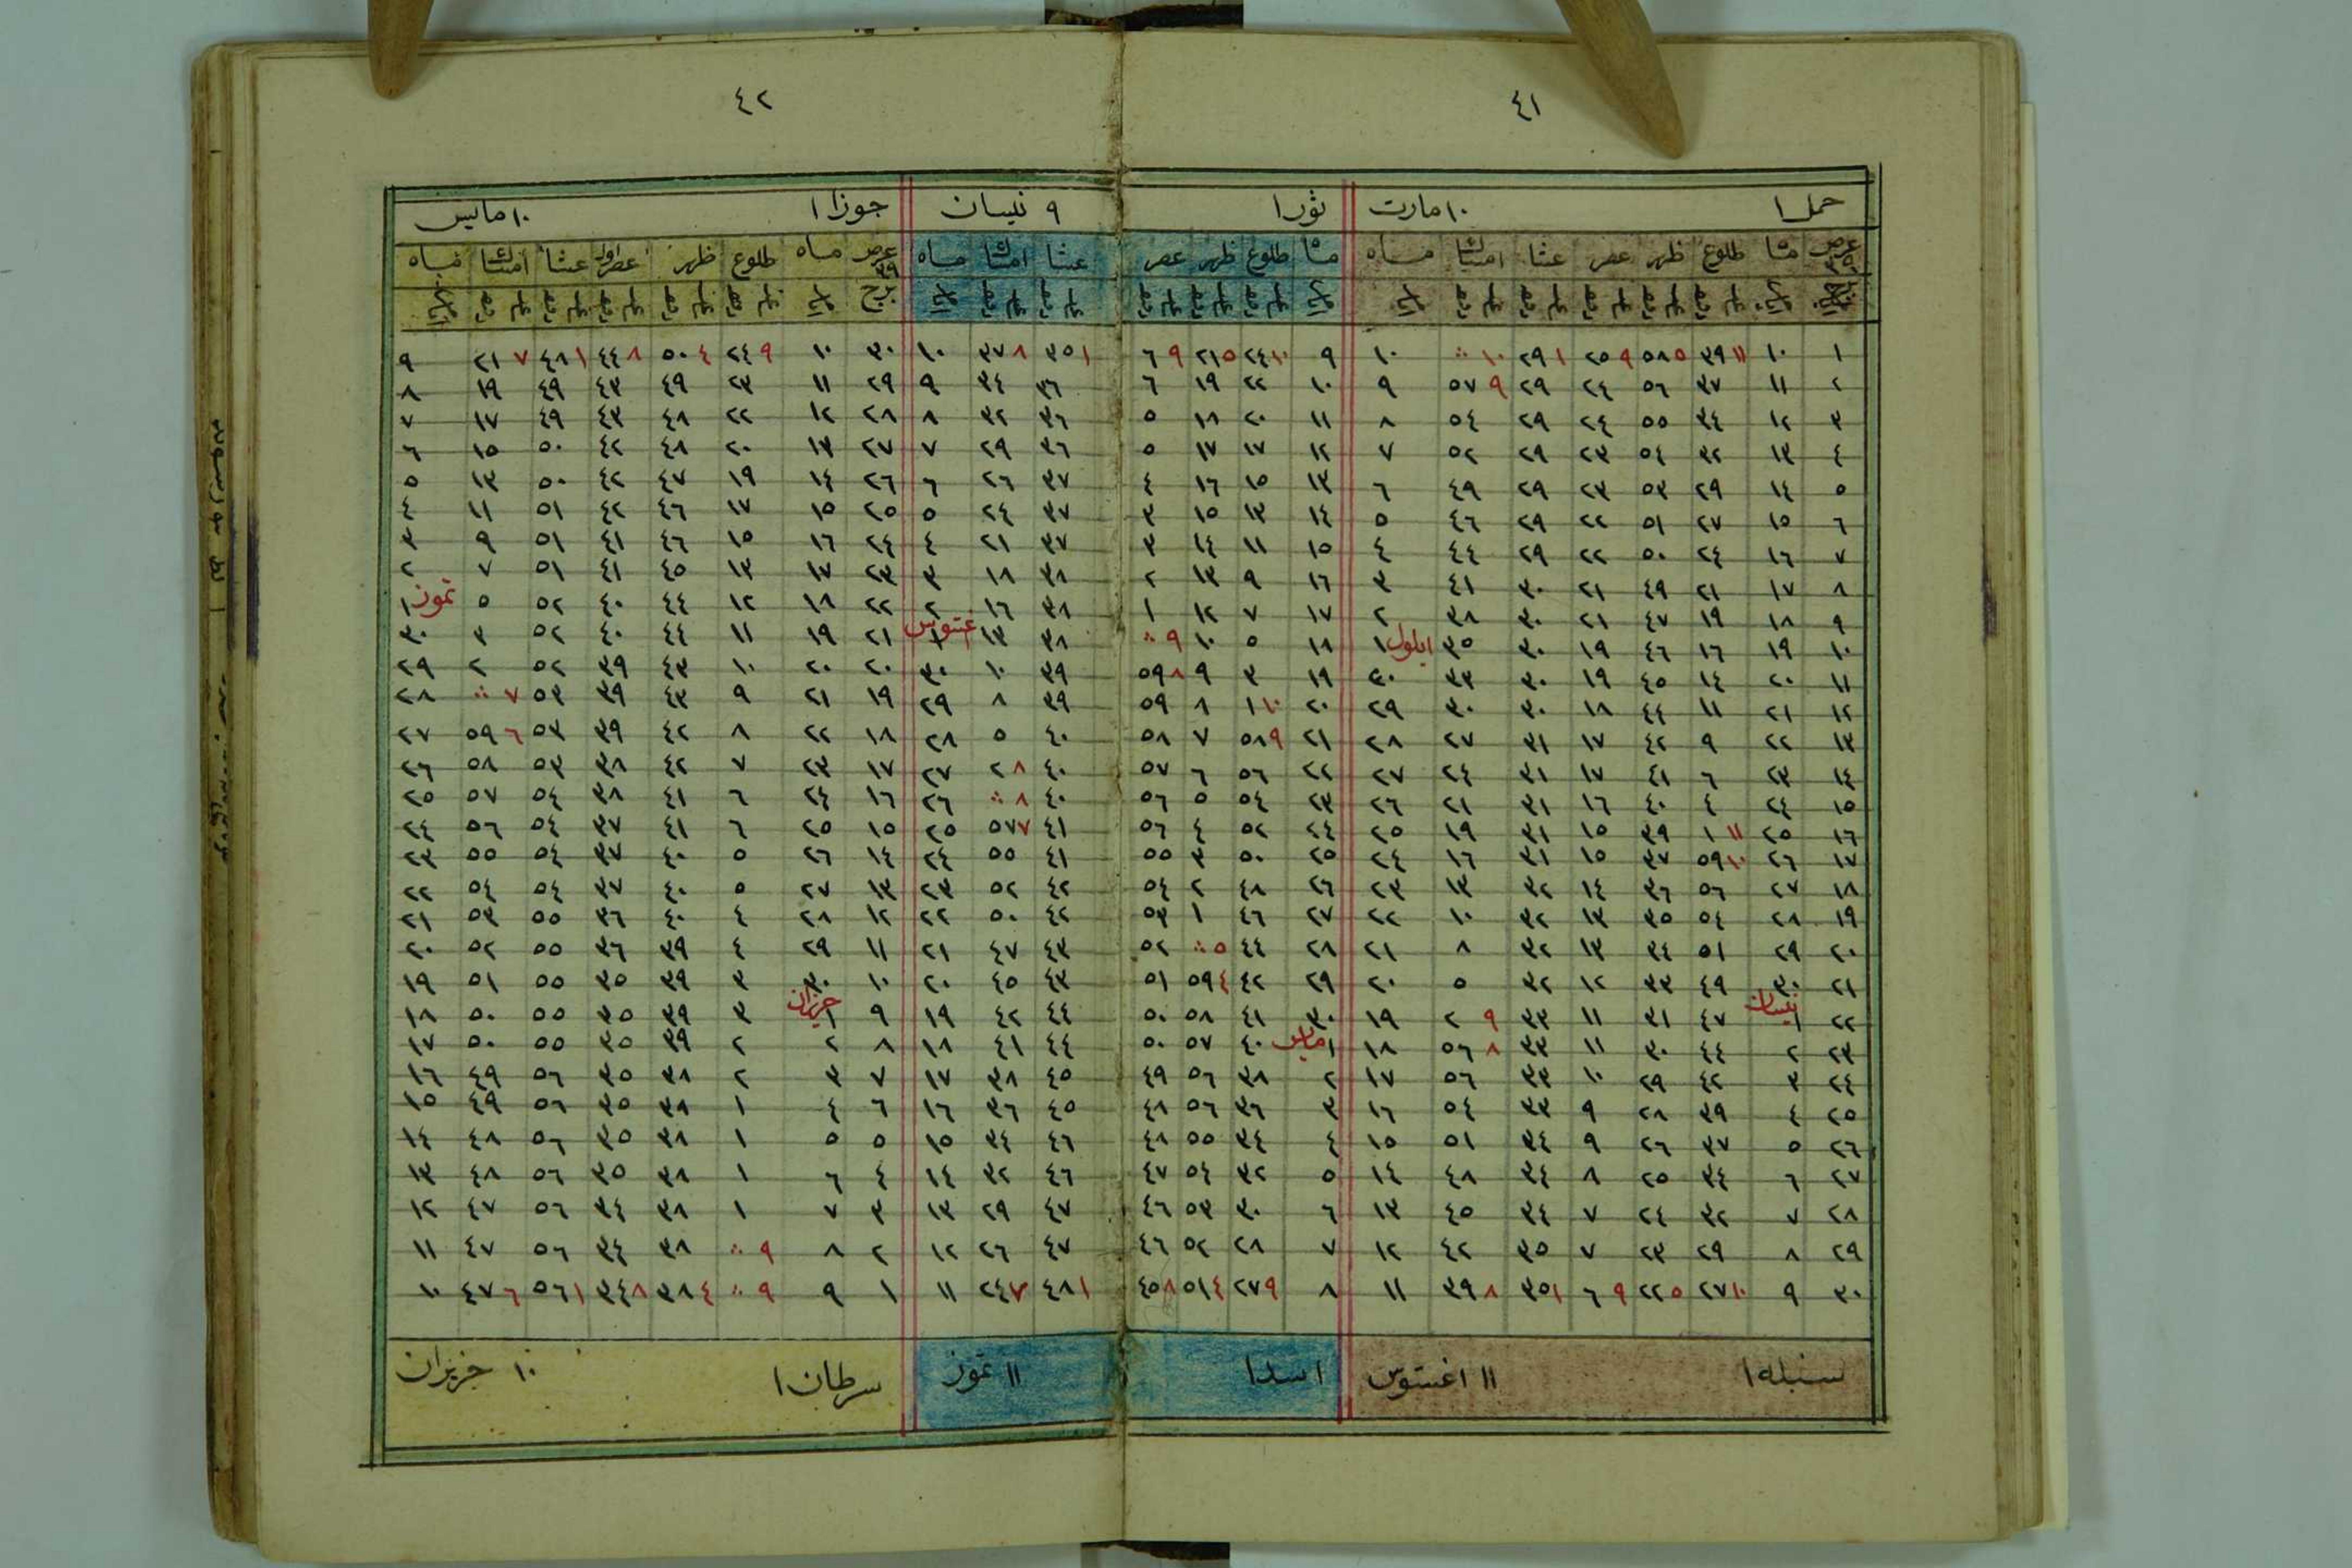 ٤١
حمل ١ ١٠ مارت
ثور ١ ٩ نيسان
عرض ماه طلوع ظهر عصر عشا امساك ماه
ماه طلوع ظهر عصر عشا امساك ماه
١ ١٠ ١١ ٣٩ ٥ ٥٨ ٩ ٢٥ ١ ٢٩ ١٠ ٠٠ ١٠
٢ ١١ ٣٧ ٥٦ ٢٤ ٢٩ ٩ ٥٧ ٩
٣ ١٢ ٣٤ ٥٥ ٢٤ ٢٩ ٥٤ ٨
٤ ١٣ ٣٢ ٥٤ ٢٣ ٢٩ ٥٢ ٧
٥ ١٤ ٢٩ ٥٣ ٢٣ ٢٩ ٤٩ ٦
٦ ١٥ ٢٧ ٥١ ٢٢ ٢٩ ٤٦ ٥
٧ ١٦ ٢٤ ٥٠ ٢٢ ٢٩ ٤٤ ٤
٨ ١٧ ٢١ ٤٩ ٢١ ٣٠ ٤١ ٣
٩ ١٨ ١٩ ٤٧ ٢١ ٣٠ ٣٨ ٢
١٠ ١٩ ١٦ ٤٦ ١٩ ٣٠ ٣٥ ايلول ١
١١ ٢٠ ١٤ ٤٥ ١٩ ٣٠ ٣٣ ٣٠
١٢ ٢١ ١١ ٤٤ ١٨ ٣٠ ٣٠ ٢٩
١٣ ٢٢ ٩ ٤٢ ١٧ ٣١ ٢٧ ٢٨
١٤ ٢٣ ٦ ٤١ ١٧ ٣١ ٢٤ ٢٧
١٥ ٢٤ ٤ ٤٠ ١٦ ٣١ ٢١ ٢٦
١٦ ٢٥ ١١ ١ ٣٩ ١٥ ٣١ ١٩ ٢٥
١٧ ٢٦ ١٠ ٥٩ ٣٧ ١٥ ٣١ ١٦ ٢٤
١٨ ٢٧ ٥٦ ٣٦ ١٤ ٣٢ ١٣ ٢٣
١٩ ٢٨ ٥٤ ٣٥ ١٣ ٣٢ ١٠ ٢٢
٢٠ ٢٩ ٥١ ٣٤ ١٣ ٣٢ ٨ ٢١
٢١ ٣٠ ٤٩ ٣٣ ١٢ ٣٢ ٥ ٢٠
٢٢ نيسان ١ ٤٧ ٣١ ١١ ٣٣ ٩ ٢ ١٩
٢٣ ٢ ٤٤ ٣٠ ١١ ٣٣ ٨ ٥٦ ١٨
٢٤ ٣ ٤٢ ٢٩ ١٠ ٣٣ ٥٦ ١٧
٢٥ ٤ ٣٩ ٢٨ ٩ ٣٣ ٥٤ ١٦
٢٦ ٥ ٣٧ ٢٦ ٩ ٣٤ ٥١ ١٥
٢٧ ٦ ٣٤ ٢٥ ٨ ٣٤ ٤٨ ١٤
٢٨ ٧ ٣٢ ٢٤ ٧ ٣٤ ٤٥ ١٣
٢٩ ٨ ٢٩ ٢٣ ٧ ٣٥ ٤٢ ١٢
٣٠ ٩ ١٠ ٢٧ ٥ ٢٢ ٩ ٦ ١ ٣٥ ٨ ٣٩ ١١
سنبله ١ ١١ اغستوس
٩ ١٠ ٢٤ ٥ ٢١ ٩ ٦ ١ ٣٥ ٨ ٣٧ ١٠
١٠ ٢٢ ١٩ ٦ ٣٦ ٣٤ ٩
١١ ٢٠ ١٨ ٥ ٣٦ ٣٢ ٨
١٢ ١٧ ١٧ ٥ ٣٦ ٢٩ ٧
١٣ ١٥ ١٦ ٤ ٣٧ ٢٦ ٦
١٤ ١٣ ١٥ ٣ ٣٧ ٢٤ ٥
١٥ ١١ ١٤ ٣ ٣٧ ٢١ ٤
١٦ ٩ ١٣ ٢ ٣٨ ١٨ ٣
١٧ ٧ ١٢ ١ ٣٨ ١٦ ٢
١٨ ٥ ١٠ ٩ ٠٠ ٣٨ ١٣ اغستوس ١
١٩ ٣ ٩ ٨ ٥٩ ٣٩ ١٠ ٣٠
٢٠ ١٠ ١ ٨ ٥٩ ٣٩ ٨ ٢٩
٢١ ٩ ٥٨ ٧ ٥٨ ٤٠ ٥ ٢٨
٢٢ ٥٦ ٦ ٥٧ ٤٠ ٨ ٢ ٢٧
٢٣ ٥٤ ٥ ٥٦ ٤٠ ٨ ٠٠ ٢٦
٢٤ ٥٢ ٤ ٥٦ ٤١ ٧ ٥٧ ٢٥
٢٥ ٥٠ ٣ ٥٥ ٤١ ٥٥ ٢٤
٢٦ ٤٨ ٢ ٥٤ ٤٢ ٥٢ ٢٣
٢٧ ٤٦ ١ ٥٣ ٤٢ ٥٠ ٢٢
٢٨ ٤٤ ٥ ٠٠ ٥٢ ٤٣ ٤٧ ٢١
٢٩ ٤٢ ٤ ٥٩ ٥١ ٤٣ ٤٥ ٢٠
٣٠ ٤١ ٥٨ ٥٠ ٤٤ ٤٢ ١٩
مايس ١ ٤٠ ٥٧ ٥٠ ٤٤ ٤١ ١٨
٢ ٣٨ ٥٦ ٤٩ ٤٥ ٣٨ ١٧
٣ ٣٦ ٥٦ ٤٨ ٤٥ ٣٦ ١٦
٤ ٣٤ ٥٥ ٤٨ ٤٦ ٣٤ ١٥
٥ ٣٢ ٥٤ ٤٧ ٤٦ ٣٢ ١٤
٦ ٣٠ ٥٣ ٤٦ ٤٧ ٢٩ ١٣
٧ ٢٨ ٥٢ ٤٦ ٤٧ ٢٦ ١٢
٨ ٩ ٢٧ ٤ ٥١ ٨ ٤٥ ١ ٤٨ ٧ ٢٤ ١١
اسد ١ ١١ تموز
٤٢
جوزا ١ ١٠ مايس
عرض ٣٩ برج ماه طلوع ظهر عصر اول عشا امساك ماه
٣٠ ١٠ ٩ ٢٤ ٤ ٥٠ ٨ ٤٤ ١ ٤٨ ٧ ٢١ ٩
٢٩ ١١ ٢٣ ٤٩ ٤٣ ٤٩ ١٩ ٨
٢٨ ١٢ ٢٢ ٤٨ ٤٣ ٤٩ ١٧ ٧
٢٧ ١٣ ٢٠ ٤٨ ٤٢ ٥٠ ١٥ ٦
٢٦ ١٤ ١٩ ٤٧ ٤٢ ٥٠ ١٣ ٥
٢٥ ١٥ ١٧ ٤٦ ٤٢ ٥١ ١١ ٤
٢٤ ١٦ ١٥ ٤٦ ٤١ ٥١ ٩ ٣
٢٣ ١٧ ١٣ ٤٥ ٤١ ٥١ ٧ ٢
٢٢ ١٨ ١٢ ٤٤ ٤٠ ٥٢ ٥ تموز ١
٢١ ١٩ ١١ ٤٤ ٤٠ ٥٢ ٣ ٣٠
٢٠ ٢٠ ١٠ ٤٣ ٣٩ ٥٢ ٢ ٢٩
١٩ ٢١ ٩ ٤٣ ٣٩ ٥٣ ٧ ٠٠ ٢٨
١٨ ٢٢ ٨ ٤٢ ٣٩ ٥٣ ٦ ٥٩ ٢٧
١٧ ٢٣ ٧ ٤٢ ٣٨ ٥٣ ٥٨ ٢٦
١٦ ٢٤ ٦ ٤١ ٣٨ ٥٤ ٥٧ ٢٥
١٥ ٢٥ ٦ ٤١ ٣٧ ٥٤ ٥٦ ٢٤
١٤ ٢٦ ٥ ٤٠ ٣٧ ٥٤ ٥٥ ٢٣
١٣ ٢٧ ٥ ٤٠ ٣٧ ٥٤ ٥٤ ٢٢
١٢ ٢٨ ٤ ٤٠ ٣٦ ٥٥ ٥٣ ٢١
١١ ٢٩ ٤ ٣٩ ٣٦ ٥٥ ٥٢ ٢٠
١٠ ٣٠ ٣ ٣٩ ٣٥ ٥٥ ٥١ ١٩
٩ حزيران ١ ٣ ٣٩ ٣٥ ٥٥ ٥٠ ١٨
٨ ٢ ٢ ٣٩ ٣٥ ٥٥ ٥٠ ١٧
٧ ٣ ٢ ٣٨ ٣٥ ٥٦ ٤٩ ١٦
٦ ٤ ١ ٣٨ ٣٥ ٥٦ ٤٩ ١٥
٥ ٥ ١ ٣٨ ٣٥ ٥٦ ٤٨ ١٤
٤ ٦ ١ ٣٨ ٣٥ ٥٦ ٤٨ ١٣
٣ ٧ ١ ٣٨ ٣٤ ٥٦ ٤٧ ١٢
٢ ٨ ٩ ٠٠ ٣٨ ٣٤ ٥٦ ٤٧ ١١
١ ٩ ٩ ٠٠ ٤ ٣٨ ٨ ٣٤ ١ ٥٦ ٦ ٤٧ ١٠
سرطان ١ ١٠ حزيران